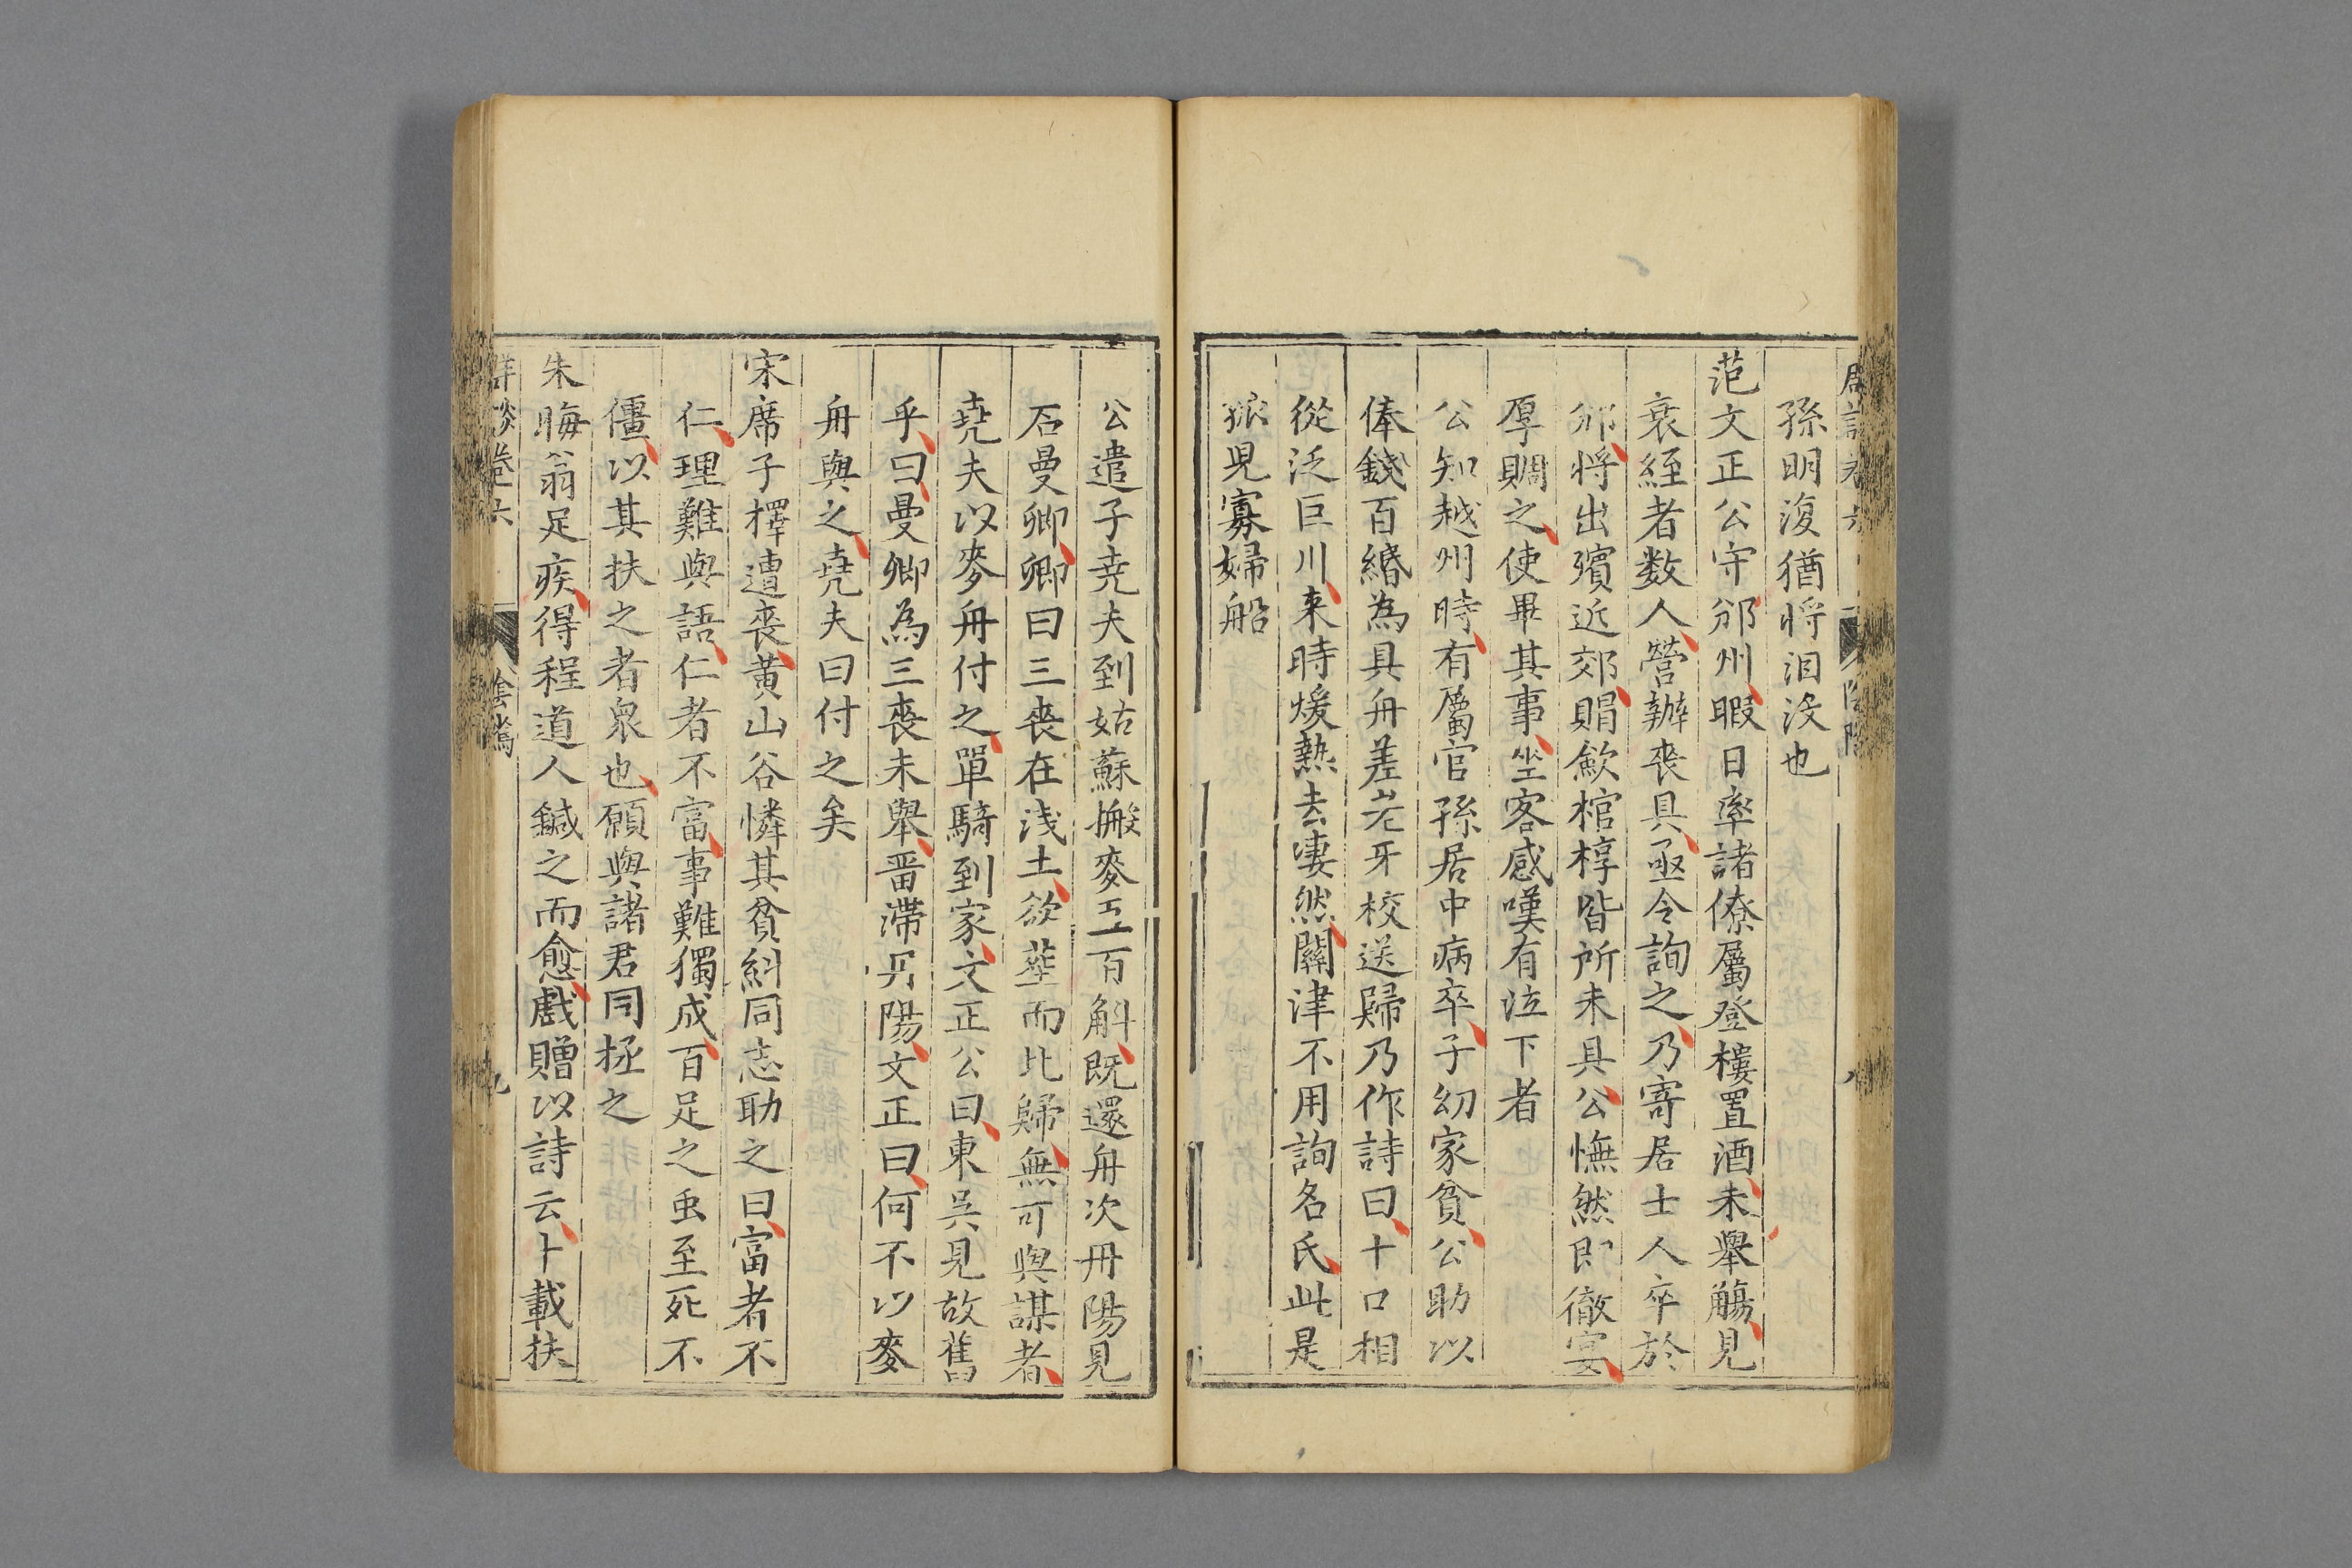 孫明復猶將泪没也
范文正公守邠州暇日率諸僚屬登樓置酒未舉觴見
衰絰者数人營辦喪具亟令詢之乃寄居士人卒於
邠将出殯近郊賵歛棺椁皆所未具公憮然即徹宴
厚賙之使畢其事坐客感嘆有泣下者
公知越州時有屬官孫居中病卒子幻家貧公助以
俸錢百緡為具舟差老牙校送歸乃作詩曰十口相
從泛巨川来時煖熱去凄然關津不用詢名氏此是
孤児寡婦船
公遣子堯夫到姑蘇搬麥五百斛既還舟次丹陽見
石曼卿卿曰三喪在浅土欲塟而北歸無可與謀者
堯夫以麥舟付之單騎到家文正公曰東吳見故舊
乎曰曼卿為三喪未舉畱滯丹陽文正曰何不以麥
舟與之堯夫曰付之矣
宋席子擇遭喪黄山谷憐其貧糾同志助之曰富者不
仁理難與語仁者不富事難獨成百足之虫至死不
僵以其扶之者衆也願與諸君同拯之
朱晦翁足疾得程道人鍼之而愈戲贈以詩云十載扶
談卷六 陰騭 九